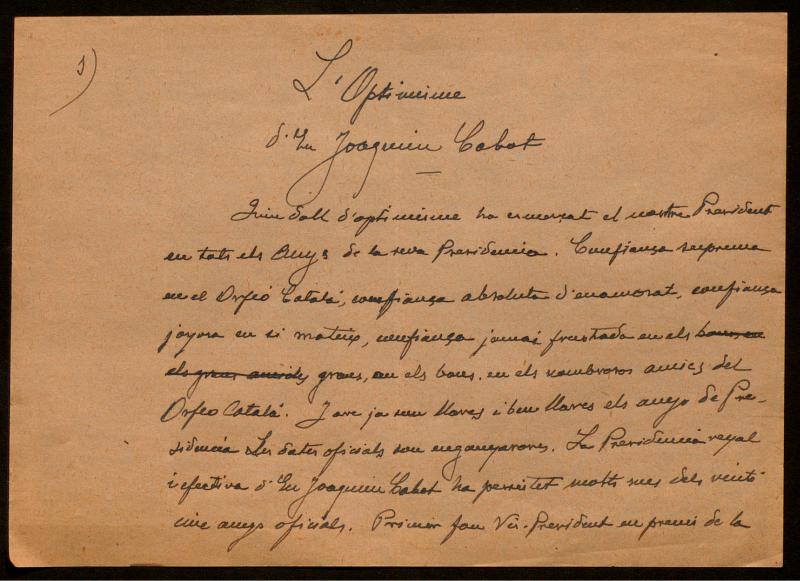 1)
L'Optimisme
d'En Joaquim Cabot
Quin doll d'optimisme ha esmerçat el nostre President
en tots els anys de la seva Presidencia. Confiança suprema
en el Orfeó Català, confiança absoluta d'enamorat, confiança
joyosa en si mateix, confiança jamai frustada en els bons, en
els grans amichs grans, en els bons, en els nombrosos amics del
Orfeó Català. I are ja son llares i ben llares els anys de Pre-
sidencia Les dates oficials son enganyaroses. La Presidencia reyal
i efectiva d'En Joaquim Cabot ha persistet molts mes dels vint i
cinc anys oficials. Primer fou Vis-President en premi de la